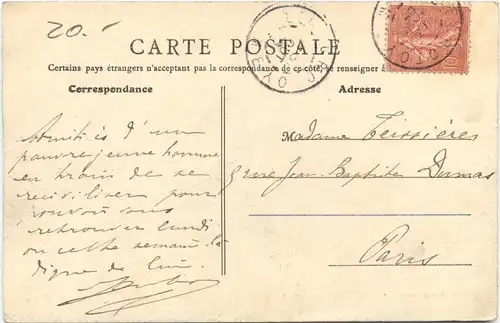 20.-
CARTE POSTALE
Certains pays étrangers n'acceptant pas la correspondance de ce côté, se renseigner à
Correspondance
Adresse
Amitiés d'un
pauvre jeune homme
en train de se
reciviliser pour
pouvoir vous
retrouver lundi
ou cette semaine-là
digne de lui.
Madame Teissières
5 rue Jean-Baptiste Dumas
Paris